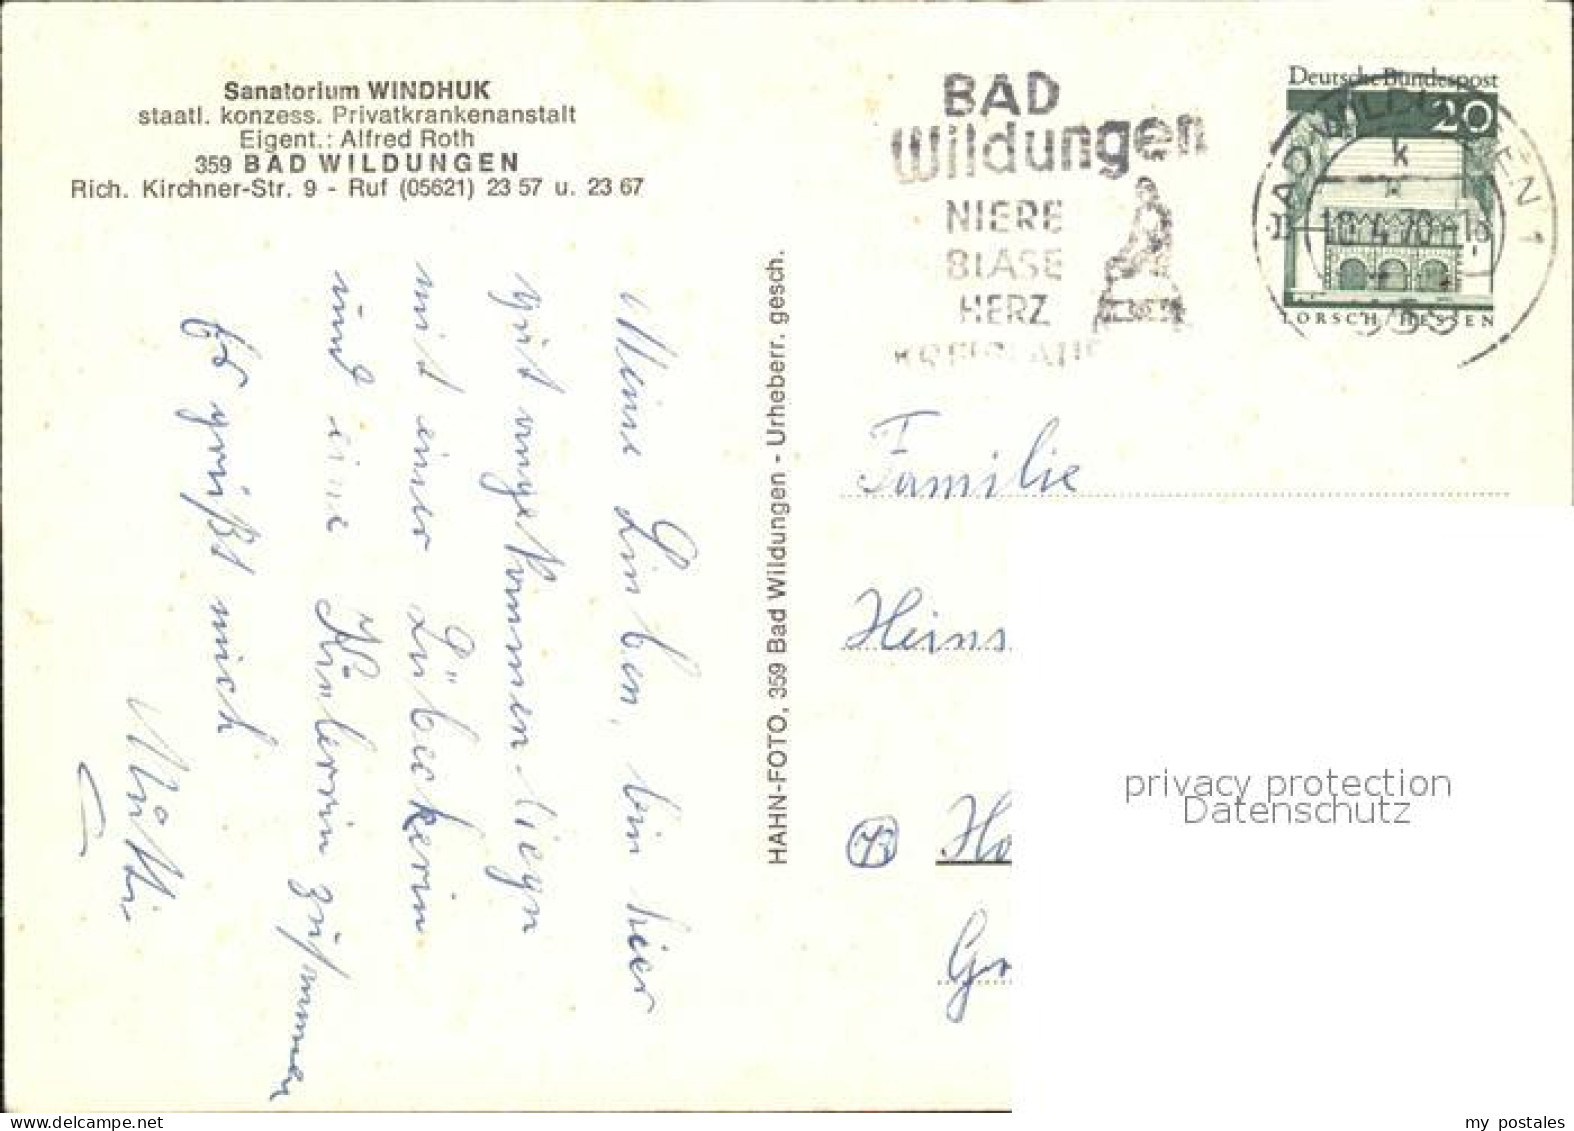 Sanatorium WINDHUK
staatl. konzess. Privatkrankenanstalt
Eigent.: Alfred Roth
359 BAD WILDUNGEN
Rich. Kirchner-Str. 9 - Ruf (05621) 23 57 u. 23 67
Meine Lieben, bin hier
gut angekommen. liege
mit einer Lübeckerin
und eine Kielerin zusammen
Es grüßt euch
Mutti
HAHN-FOTO, 359 Bad Wildungen - Urheberr. gesch.
BAD
Wildungen
NIERE
BLASE
HERZ
KREISLAUF
Deutsche Bundespost
20
LORSCH / HESSEN
BAD WILDUNGEN 1
k
10.4.70-18
Familie
Heins
Ho
Gr
privacy protection
Datenschutz
my postales